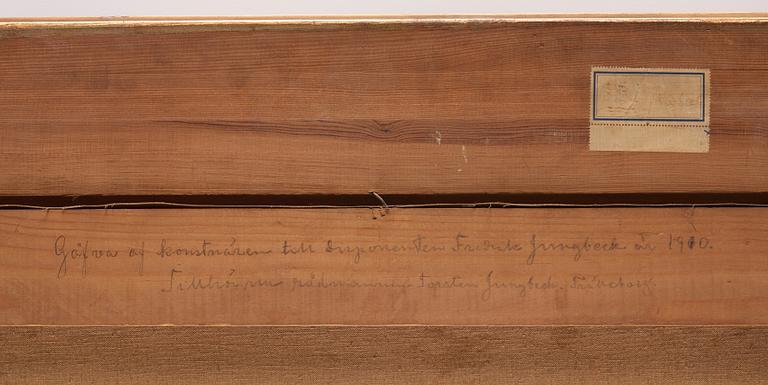 Gåfva af konstnären till disponenten Fredrik Ljungbeck år 1910.
Tillhör rådmannen Torsten Ljungbeck, Trälleborg.